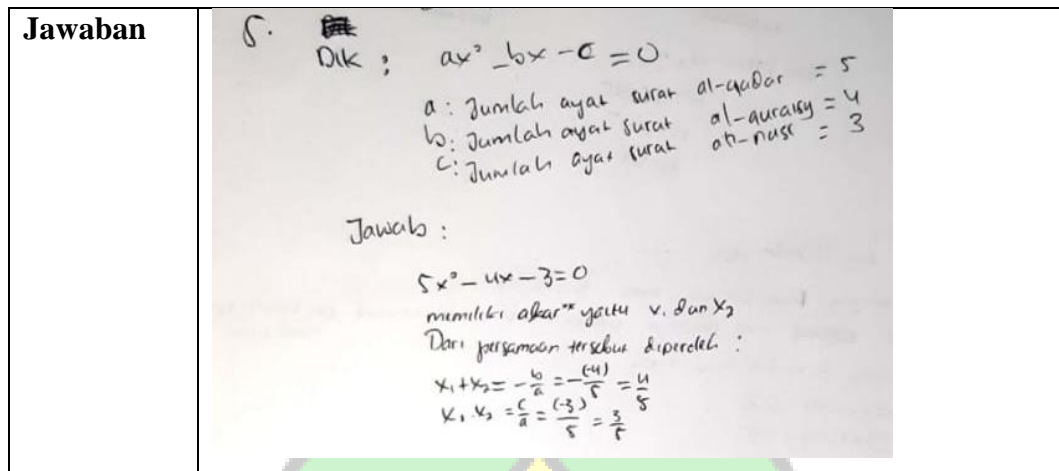 Jawaban
5.
Dik : ax² - bx - c = 0
a : Jumlah ayat surat al-qadar = 5
b : Jumlah ayat surat al-quraisy = 4
c : Jumlah ayat surat an-nasr = 3
Jawab :
5x² - 4x - 3 = 0
memiliki akar" yaitu x₁ dan x₂
Dari persamaan tersebut diperoleh :
x₁ + x₂ = - b/a = - (-4)/5 = 4/5
x₁ . x₂ = c/a = (-3)/5 = 3/5